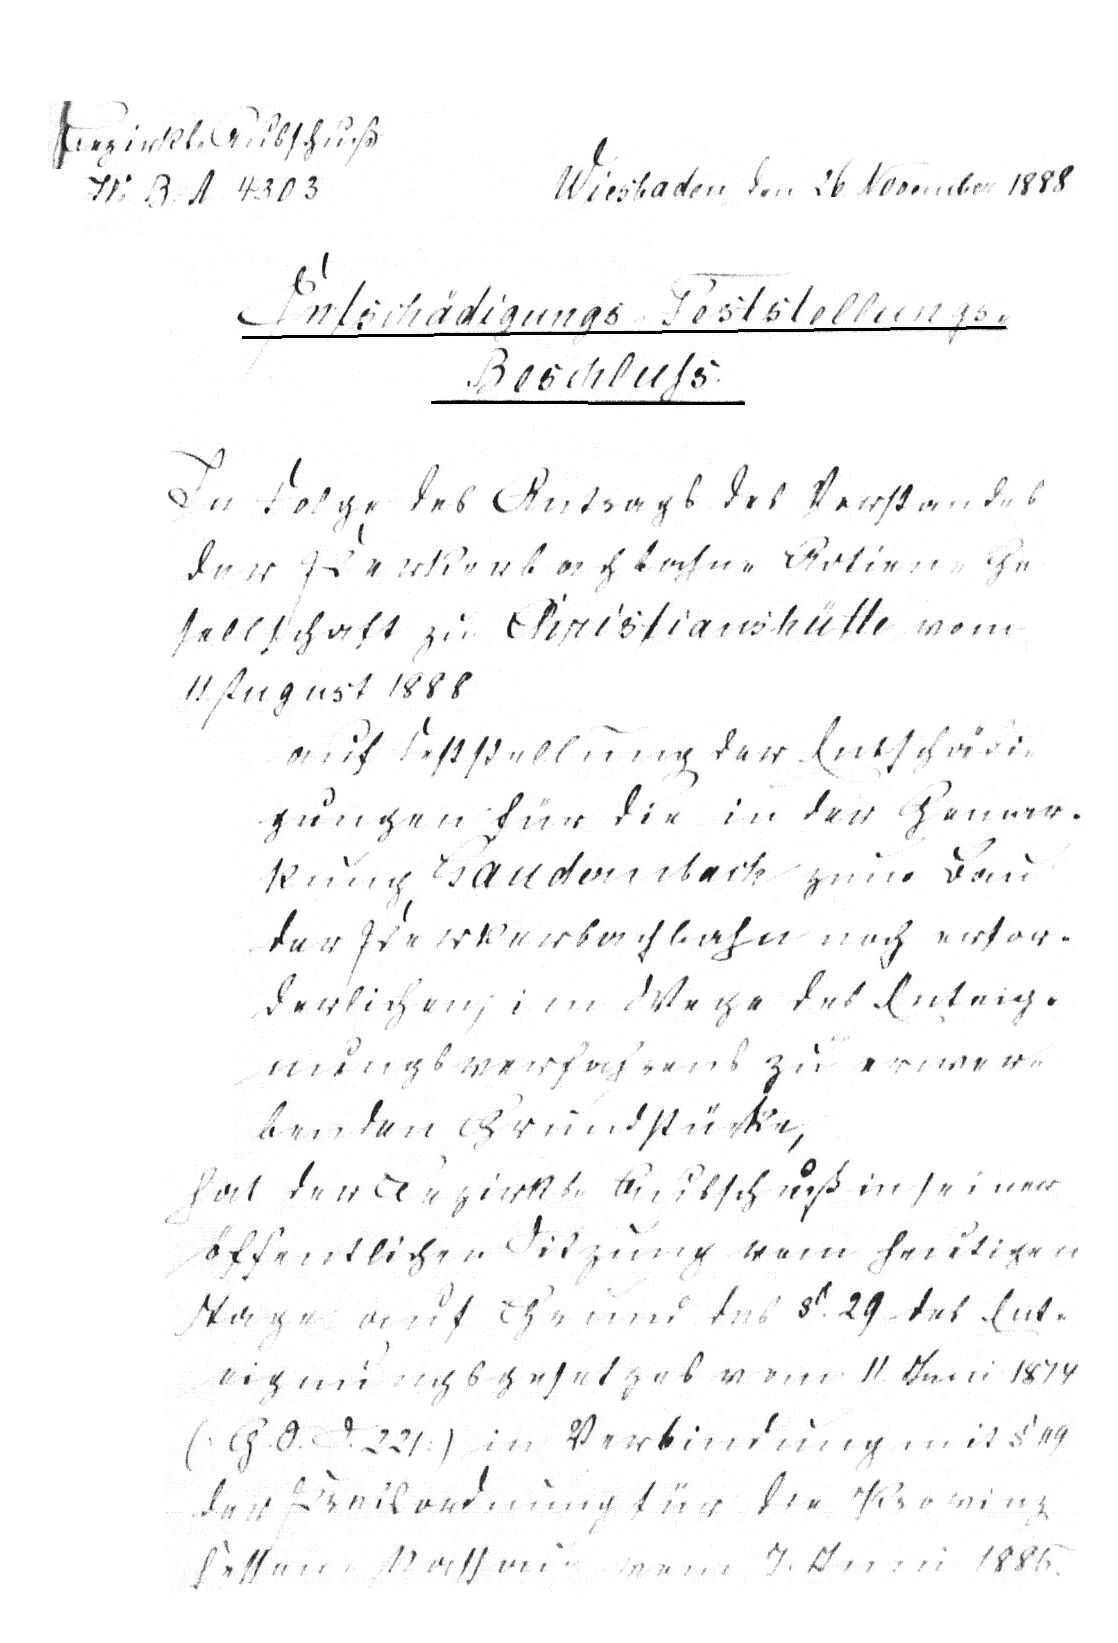 Bezirks-Ausschuß
No. B. A 4303
Wiesbaden, den 26 November 1888
Entschädigungs-Feststellungs-
Beschluss.
In Folge des Antrags des Vorstandes
der Kerkerbachbahn-Actien-Ge
sellschaft zu Christianshütte vom
11. August 1888
auf Feststellung der Entschädi-
gungen für die in der Gemar-
kung Gaudernbach zum Bau
der Kerkerbachbahn noch erfor-
derlichen, im Wege des Enteig-
nungsverfahrens zu erwer-
benden Grundstücke,
hat der Bezirks-Ausschuß in seiner
öffentlichen Sitzung vom heutigen
Tage auf Grund des §. 29 des Ent-
eignungsgesetzes vom 11 Juni 1874
(: G. S. S. 221:) in Verbindung mit §
der Kreisordnung für die Provinz
Hessen-Nassau vom 7. Juni 1885.